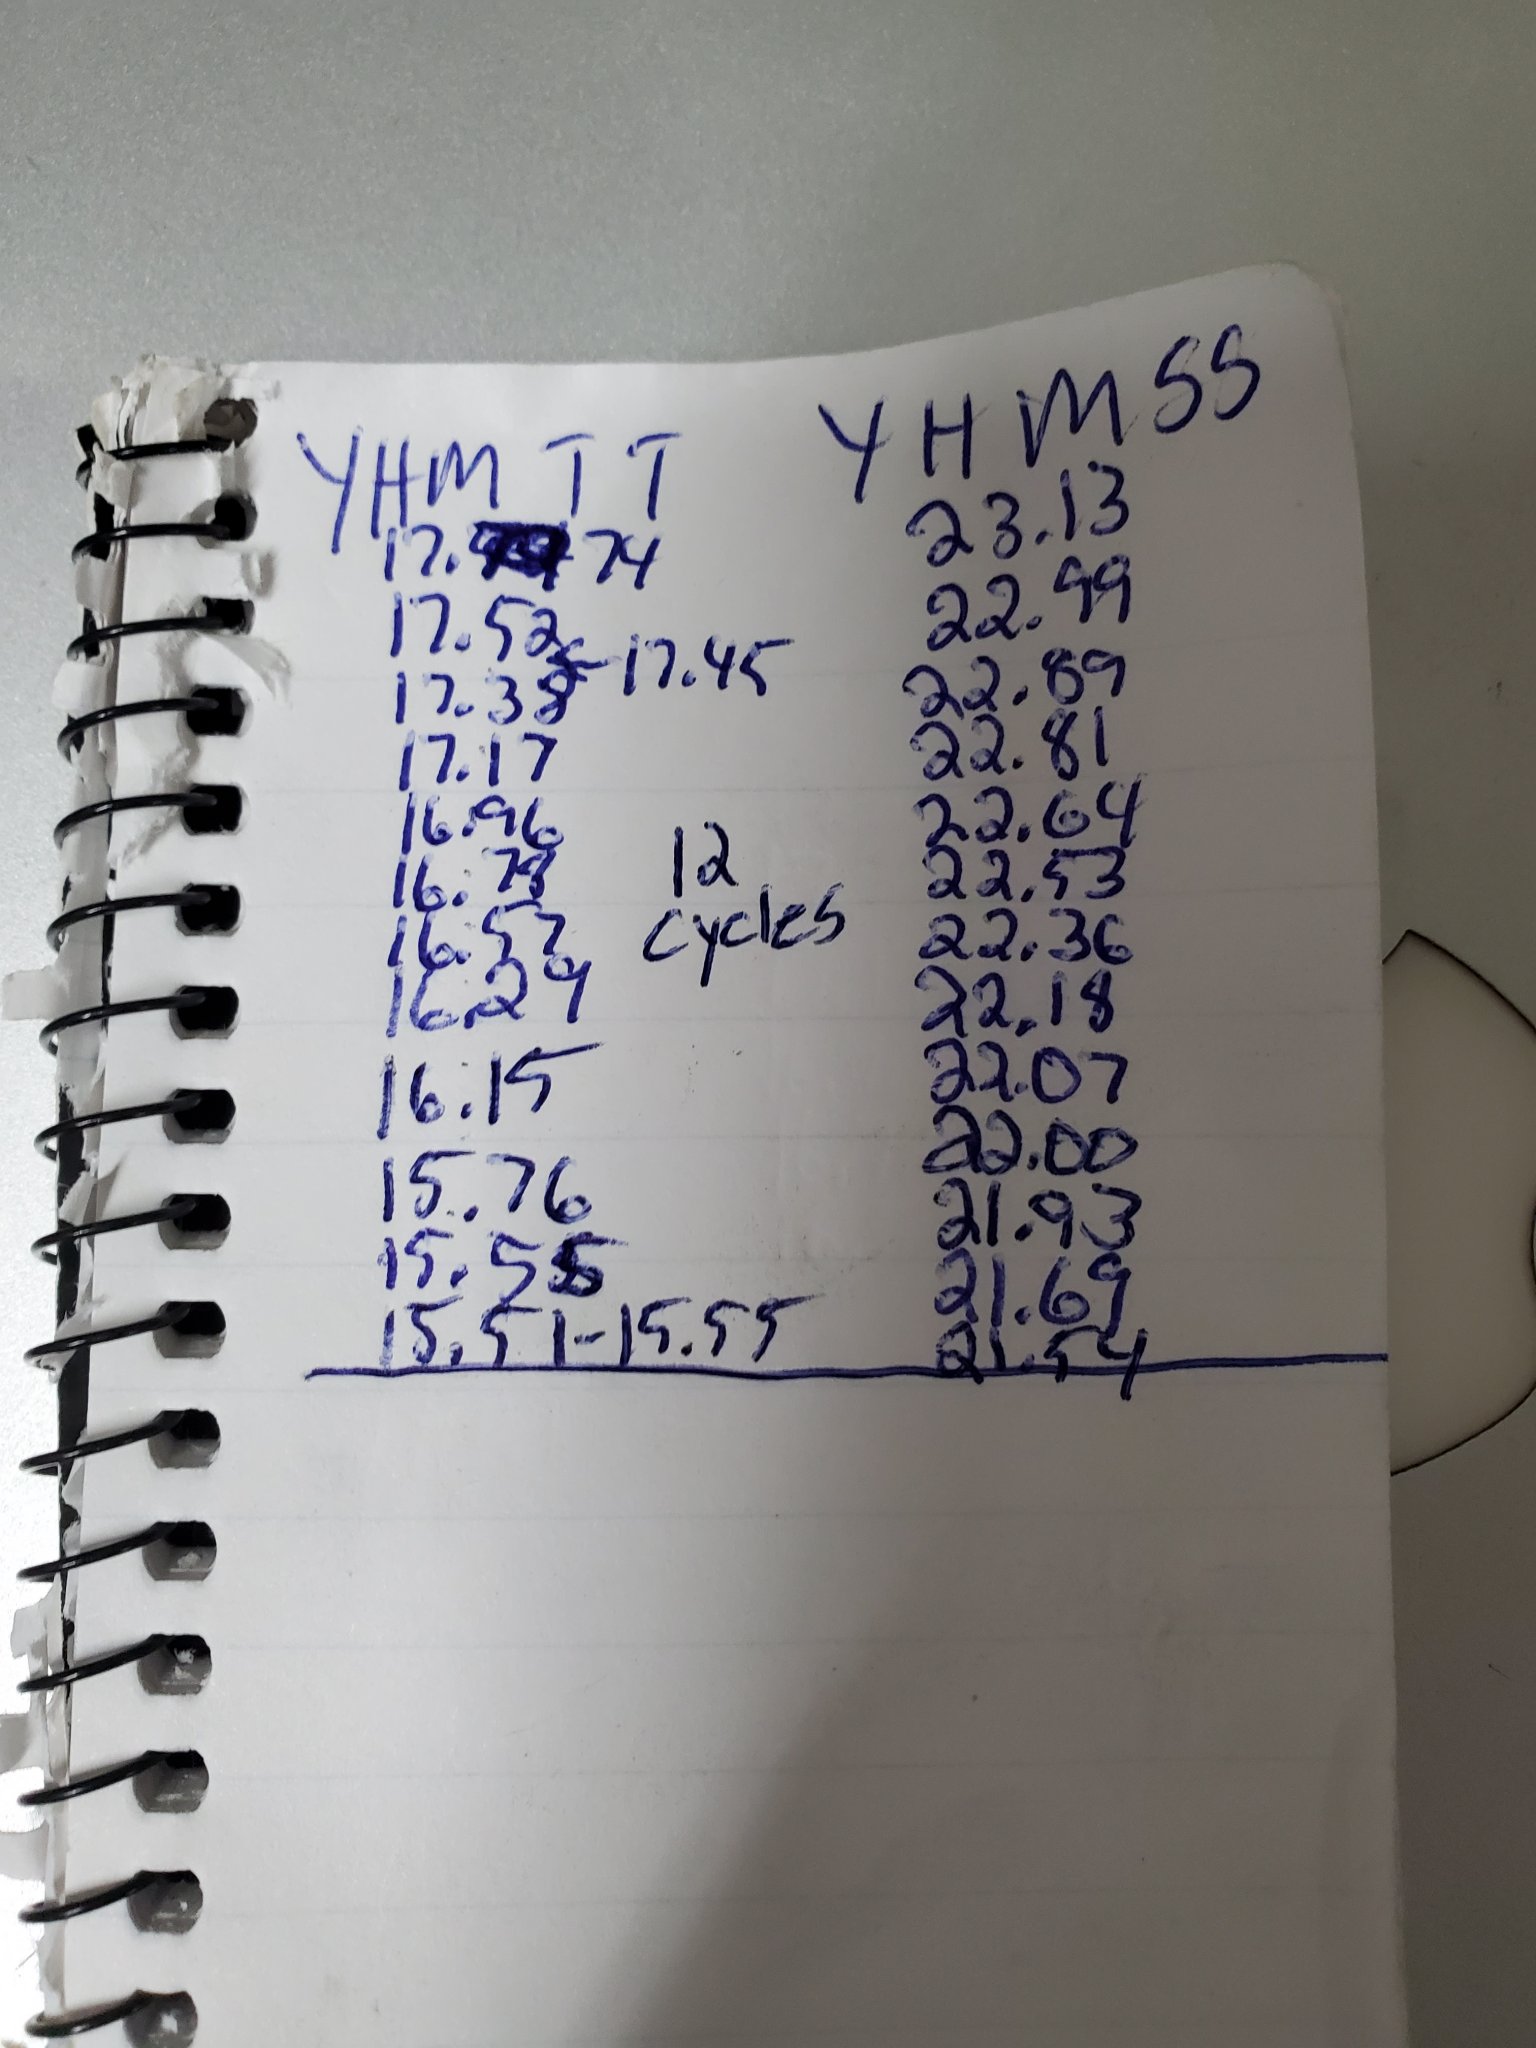 YHM TT YHM SS
17. 74 23.13
17.52 22.99
17.38 ←17.45 22.89
17.17 22.81
16.96 22.64
16. 12 22.53
16.57 cycles 22.36
16.29 22.18
16.15 22.07
15.76 22.00
15.55 21.93
15.51-15.55 21.69
21.54